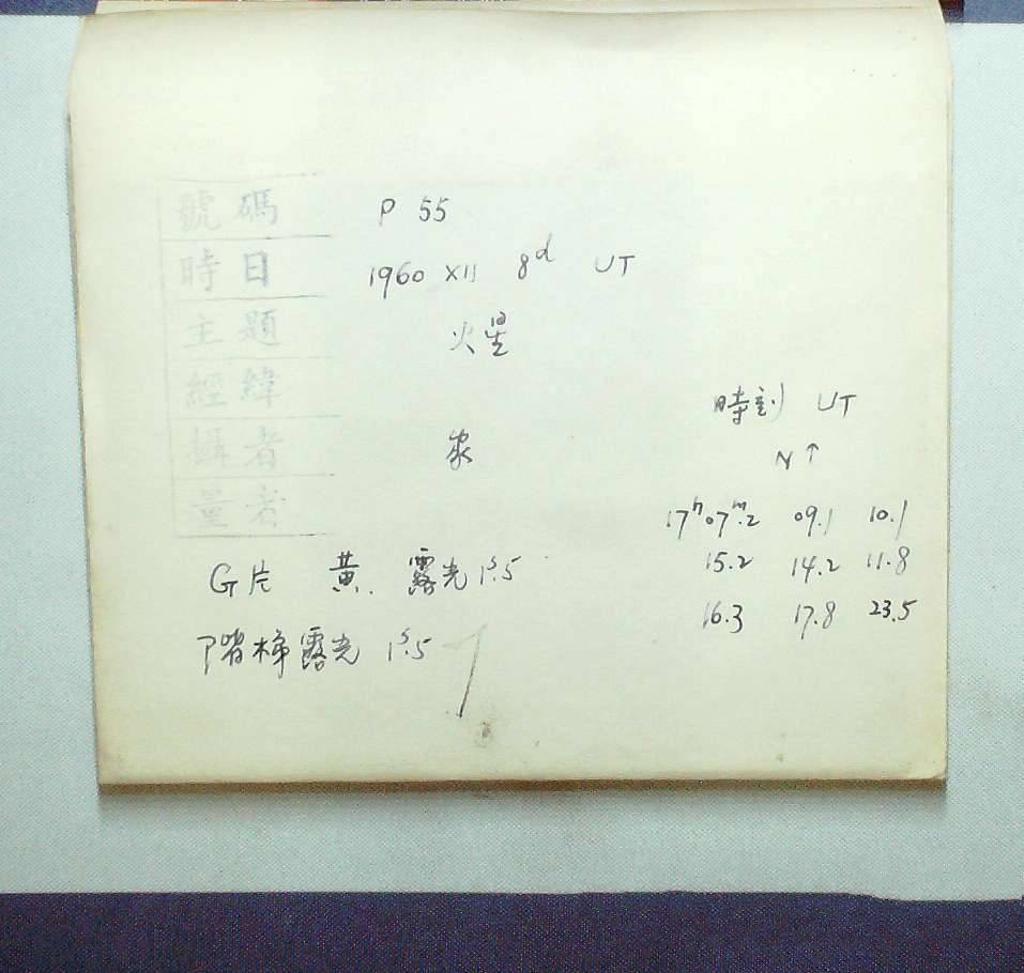 號碼 P 55
時日 1960 XII 8d UT
主題 火星
經緯
攝者
量者
時刻 UT
N↑
17h07m.2 09.1 10.1
15.2 14.2 11.8
16.3 17.8 23.5
G片 黃. 露光 1s.5
階梯露光 1s.5